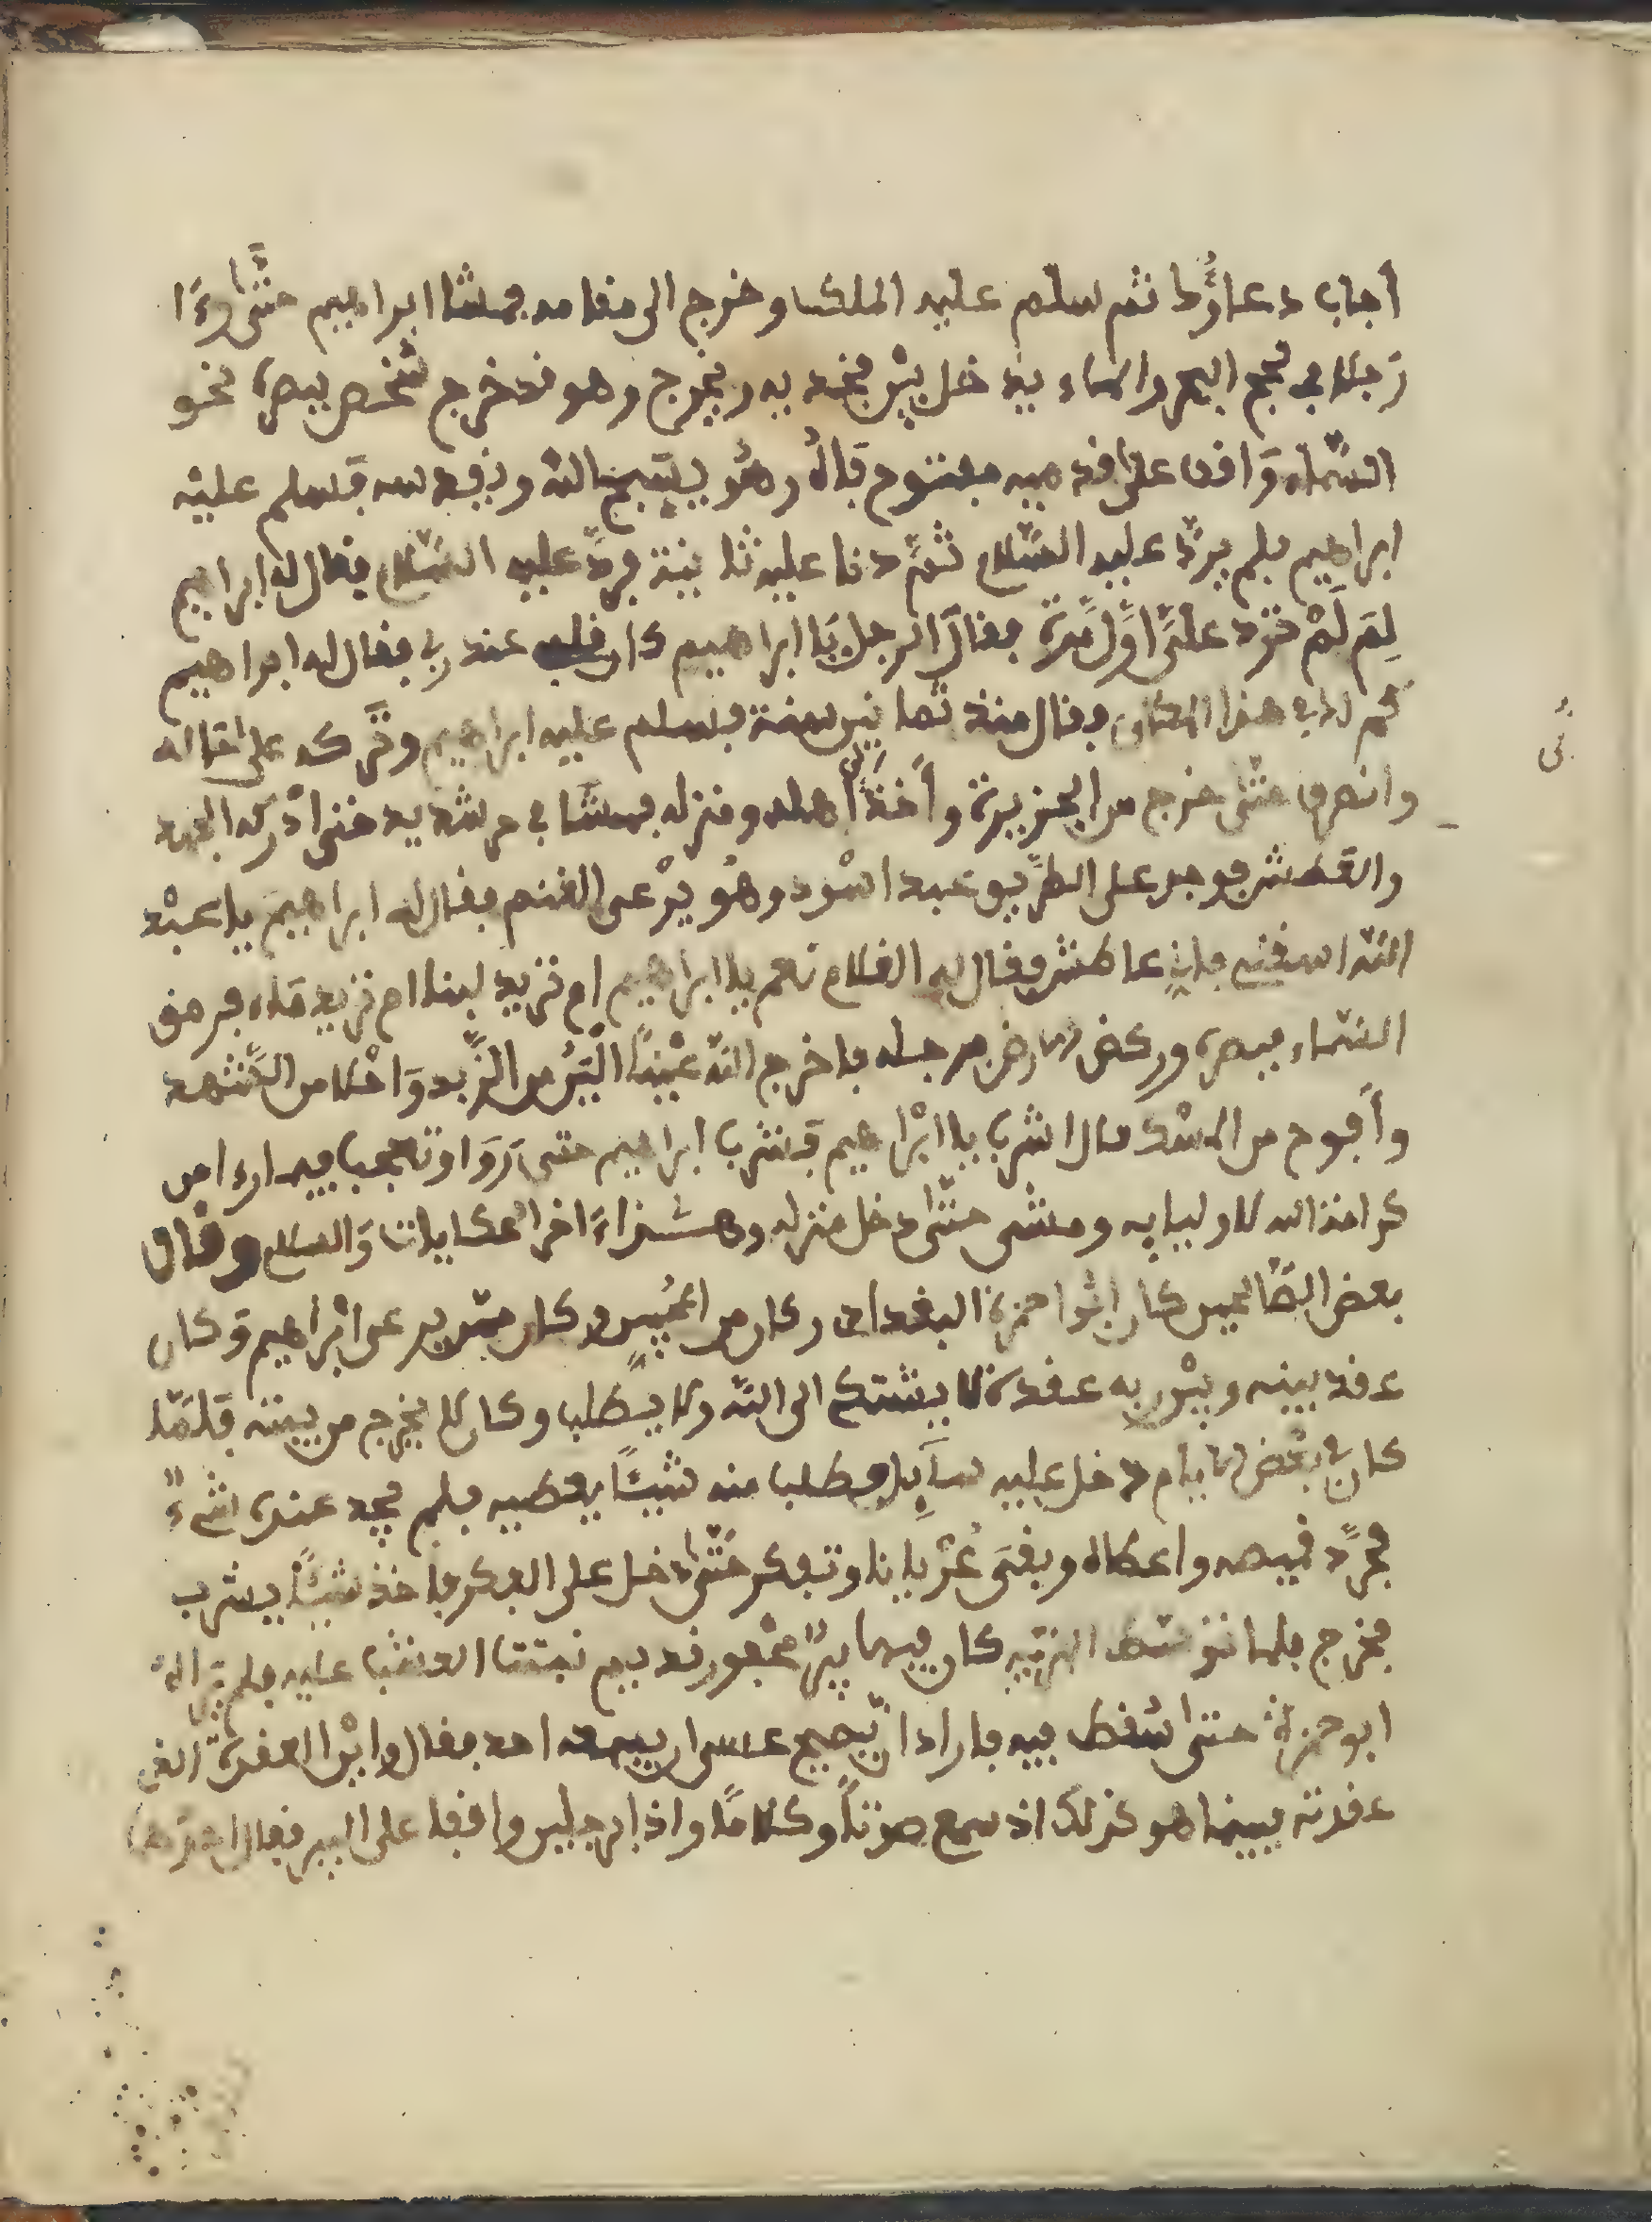 أجاب دعاؤك ثم سلم عليه الملك وخرج الى مقامه فمشا ابراهيم حتى رءا
رجلا في لجج البحر والماء يدخل بين فخديه ويخرج وهو قد خرج شخص ببصره نحو
السماء واقف على قدميه مفتوح فاه وهو يسبح الله ويقدسه فسلم عليه
ابراهيم فلم يرد عليه السلام ثم دنا عليه ثانية فرد عليه السلام فقال له ابراهيم
لم لم ترد علي اول مرة فقال الرجل يا ابراهيم كان قلبي عند ربي فقال له ابراهيم
كم لك في هذا المكان فقال منذ ثمانين سنة فسلم عليه ابراهيم وتركه على حاله
وانصرف حتى خرج من الجزيرة وأخذ الى أهله ومنزله فمشا في حر شديد حتى ادركه الجهد
والعطش فوجد على الطريق عبد اسود وهو يرعى الغنم فقال له ابراهيم يا عبد
الله اسقني فاني عاطش فقال له الغلام نعم يا ابراهيم ام تريد لبنا ام تريد ماء فرمق
السماء ببصره وركض الارض برجله فاخرج الله عينا اليّن من الزبد واحلا من الشهد
وأفوح من المسك قال اشرب يا ابراهيم فشرب ابراهيم حتى روا وتعجب فيما رءا من
كرامة الله لاوليايه ومشى حتى دخل منزله وهذا ءاخر الحكايات والسلام وقال
بعض الصالحين كان ابوا حمزة البغدادي وكان من المحبين وكان من عن ابراهيم وكان
عقد بينه وبين ربه عقدة لا يشتكي الى الله ولا يطلب وكان لا يخرج من بيته فلما
كان في بعض الايام دخل عليه سآيل فطلب منه شيئا يعطيه فلم يجد عنده شيء
فجرد قميصه واعطاه وبقى عريانا وتفكر حتى دخل على الفكر فاخذ شيئا يشرب
فخرج فلما توسط كان فيها بير محفور قديم نبتت العشب عليه فلم يراه
ابو حمزة حتى سقط فيه فاراد ان يصيح عسى ان يسمعه احد فقال واين العقدة التي
عقدته فبينما هو كذلك اذ سمع صوتا وكلاما واذا برجلين واقفا على البير فقال احدهما
لى